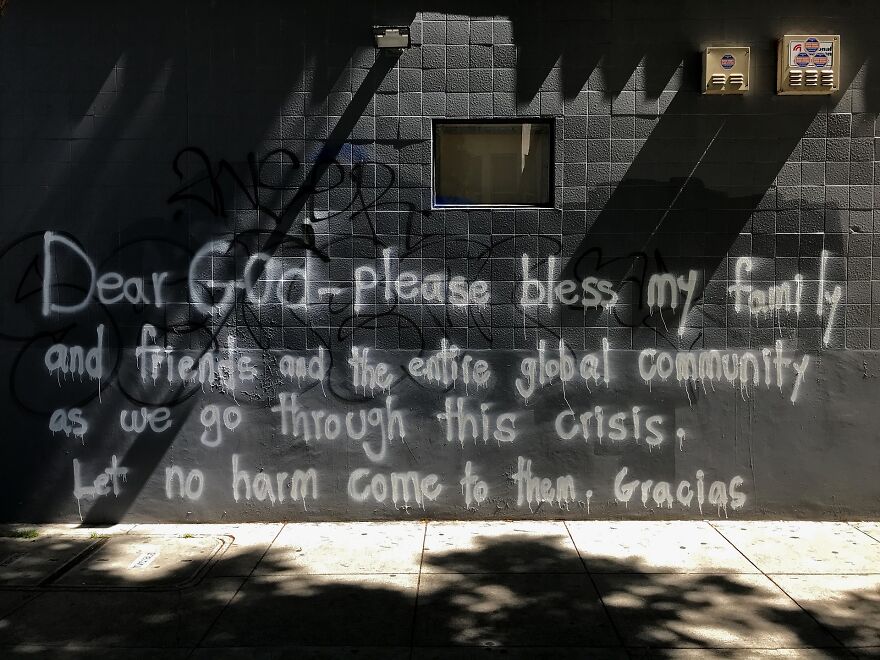 Dear God - please bless my family
and friends and the entire global community
as we go through this crisis.
Let no harm come to them. Gracias